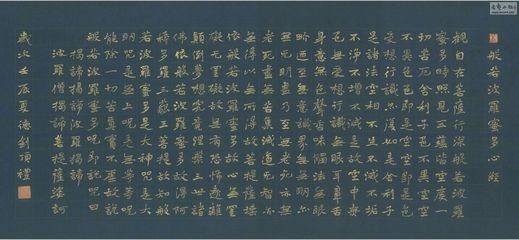 般若波羅蜜多心經
觀自在菩薩行深般若波羅
蜜多時照見五蘊皆空度一
切苦厄舍利子色不異空空
不異色色即是空空即是色
受想行識亦復如是舍利子
是諸法空相不生不滅不垢
不淨不增不減是故空中無
色無受想行識無眼耳鼻舌
身意無色聲香味觸法無眼
界乃至無意識界無無明亦
無無明盡乃至無老死亦無
老死盡無苦集滅道無智亦
無得以無所得故菩提薩埵
依般若波羅蜜多故心無罣
礙無罣礙故無有恐怖遠離
顛倒夢想究竟涅槃三世諸
佛依般若波羅蜜多故得阿
耨多羅三藐三菩提故知般
若波羅蜜多是大神呪是大
明呪是無上呪是無等等呪
能除一切苦真實不虛故說
般若波羅蜜多呪即說呪曰
揭諦揭諦 波羅揭諦
波羅僧揭諦菩提薩婆訶
歲次壬辰夏德釗頂禮